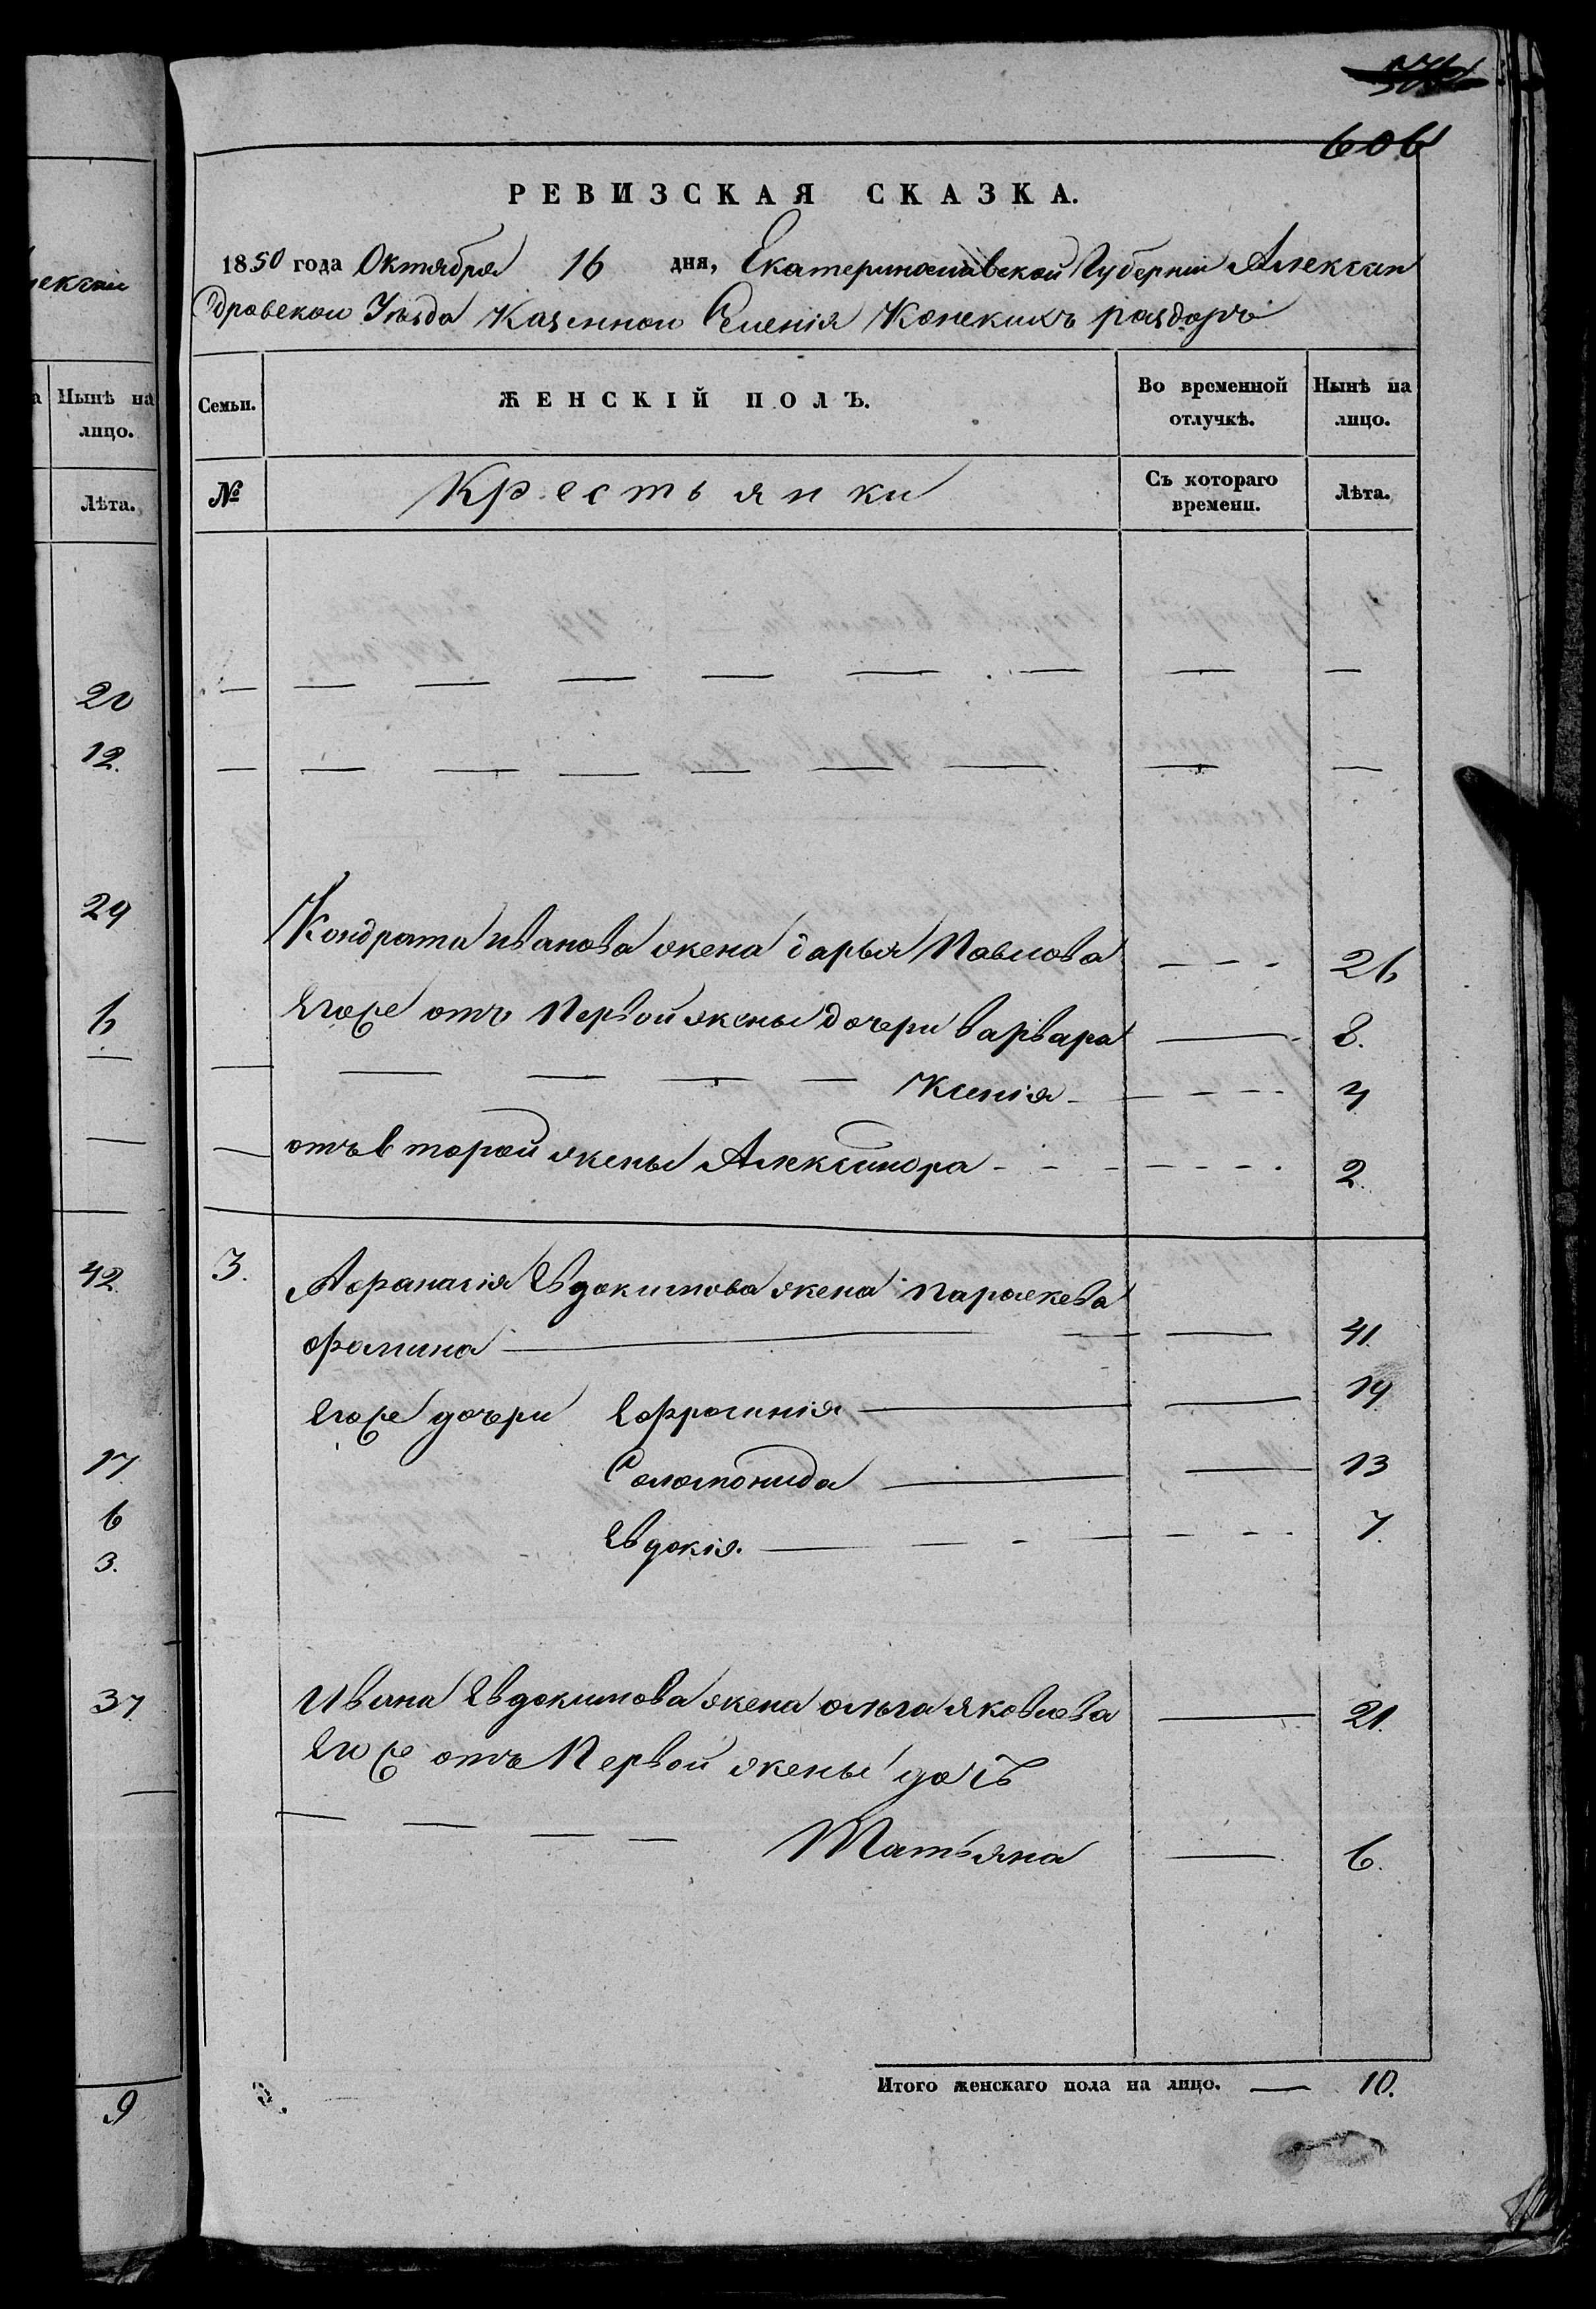 606
РЕВИЗСКАЯ СКАЗКА.
1850 года Октября 16 дня, Екатеринославской Губерніи Алексан
дровскои Уѣзда Казеннои Селенія Конскихъ раздоръ
Семьи.
ЖЕНСКІЙ ПОЛЪ.
Во временной отлучкѣ.
Нынѣ на лицо.
№
Крестьянки
Съ котораго времени.
Лѣта.
Кондрата иванова жена дарья Павлова — 26
Егоже отъ Первой жены дочери варвара — 8.
Ксенія — 4
отъ второй жены Александра — 2.
3. Афанасія Евдокимова жена параскева
фомина — 41.
Егоже дочери Ефросинія — 19
Соломонида — 13
Евдокія. — 7.
Ивана Евдокимова жена ольга яковлева — 21.
Егоже отъ Первой жены дочь
Татьяна — 6.
Итого женскаго пола на лицо. — 10.
Нынѣ на
лицо.
Лѣта.
20
12.
29
6
42
17
6
3.
37
9